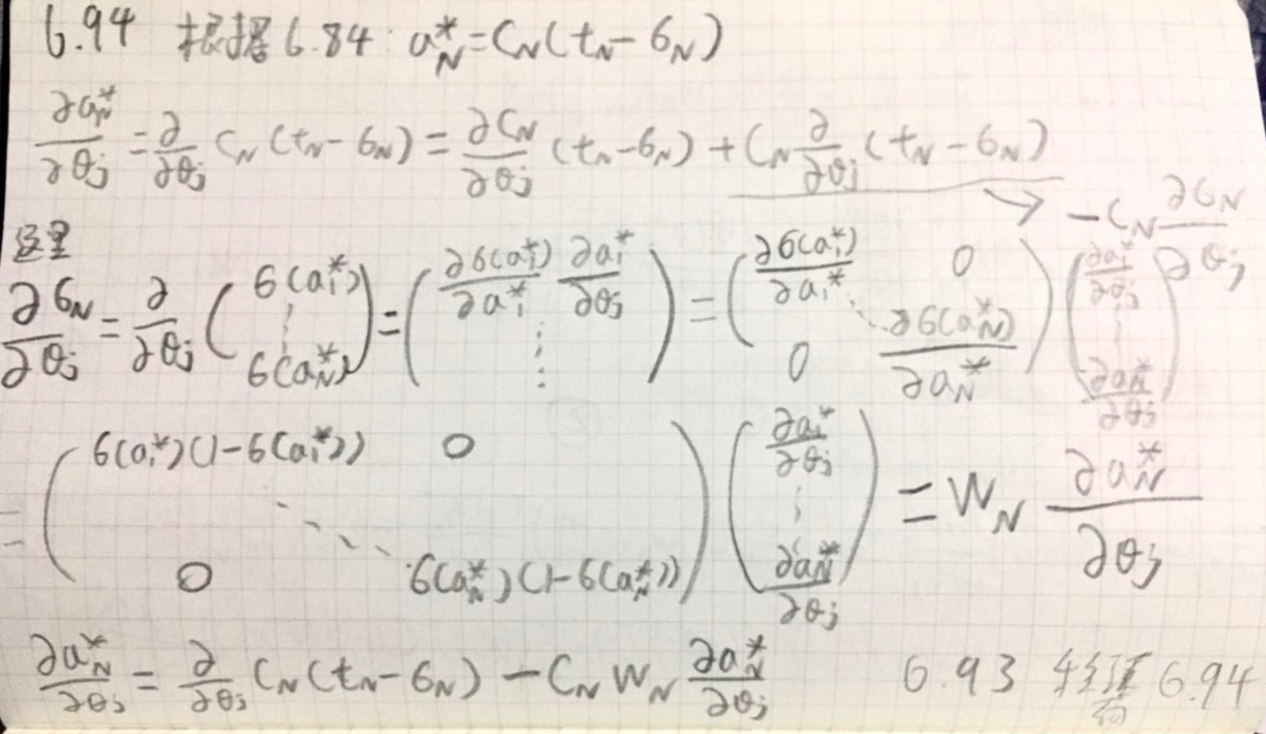 6.94 根据6.84: a*_N = C_N(t_N - σ_N)
∂a*_N/∂θ_j = ∂/∂θ_j C_N(t_N - σ_N) = ∂C_N/∂θ_j (t_N - σ_N) + C_N ∂/∂θ_j (t_N - σ_N) → -C_N ∂σ_N/∂θ_j
这里
∂σ_N/∂θ_j = ∂/∂θ_j ( σ(a*_1) ⋮ σ(a*_N) ) = ( ∂σ(a*_1)/∂a*_1 ∂a*_1/∂θ_j ⋮ ) = ( ∂σ(a*_1)/∂a*_1 0 ⋱ 0 ∂σ(a*_N)/∂a*_N ) ( ∂a*_1/∂θ_j ⋮ ∂a*_N/∂θ_j )
= ( σ(a*_1)(1-σ(a*_1)) 0 ⋱ 0 σ(a*_N)(1-σ(a*_N)) ) ( ∂a*_1/∂θ_j ⋮ ∂a*_N/∂θ_j ) = W_N ∂a*_N/∂θ_j
∂a*_N/∂θ_j = ∂/∂θ_j C_N(t_N - σ_N) - C_N W_N ∂a*_N/∂θ_j 6.93 6.94